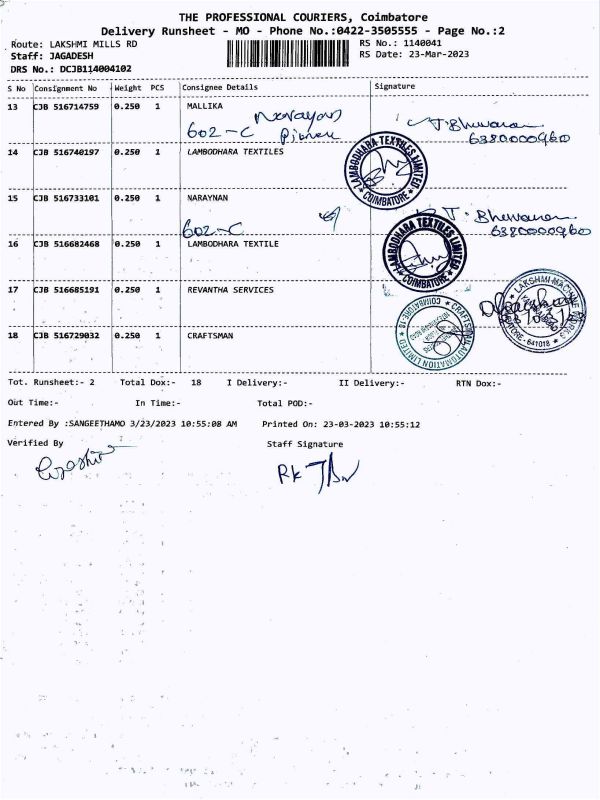 THE PROFESSIONAL COURIERS, Coimbatore
Delivery Runsheet - MO - Phone No.:0422-3505555 - Page No.:2
Route: LAKSHMI MILLS RD RS No.: 1140041
Staff: JAGADESH RS Date: 23-Mar-2023
DRS No.: DCJB114004102
S No Consignment No Weight PCS Consignee Details Signature
13 CJB 516714759 0.250 1 MALLIKA
602-C
6380000960
14 CJB 516740197 0.250 1 LAMBODHARA TEXTILES
LAMBODHARA TEXTILES LIMITED
COIMBATORE
15 CJB 516733101 0.250 1 NARAYNAN
602-C T. Bhuvana
6380000960
16 CJB 516682468 0.250 1 LAMBODHARA TEXTILE
LAMBODHARA TEXTILES LIMITED
COIMBATORE
17 CJB 516685191 0.250 1 REVANTHA SERVICES
LAKSHMI MACHINE
- 641018
18 CJB 516729032 0.250 1 CRAFTSMAN
CRAFTSMAN AUTOMATION LIMITED
COIMBATORE-18
Tot. Runsheet:- 2 Total Dox:- 18 I Delivery:- II Delivery:- RTN Dox:-
Out Time:- In Time:- Total POD:-
Entered By :SANGEETHAMO 3/23/2023 10:55:08 AM Printed On: 23-03-2023 10:55:12
Verified By Staff Signature